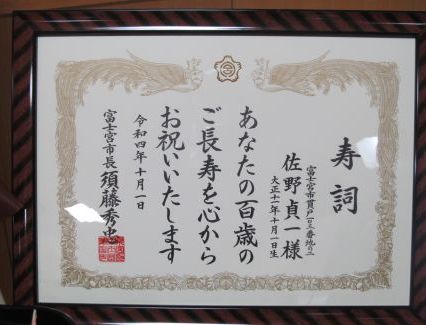 寿詞
富士宮市貫戸一〇三番地の二
佐野貞一様
大正十一年十月一日生
あなたの百歳の
ご長寿を心から
お祝いいたします
令和四年十月一日
富士宮市長 須藤秀忠